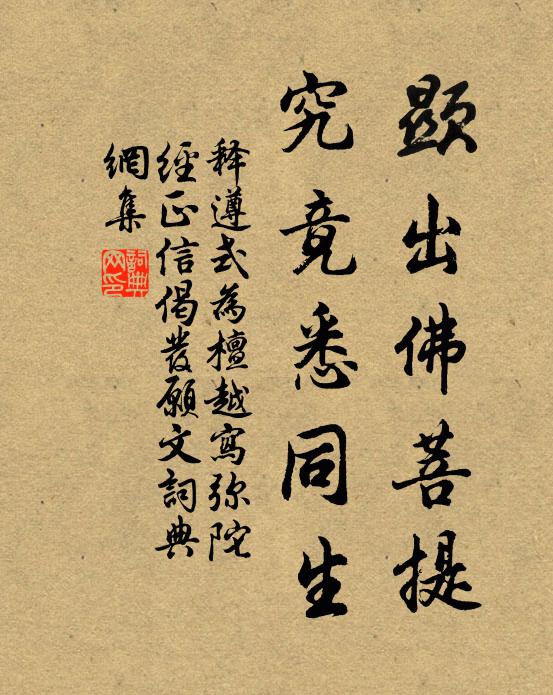 顯出佛菩提
究竟悉同生
释遵式為檀越寫弥陀
經正信偈發願文詞典
網集
詞典
网印